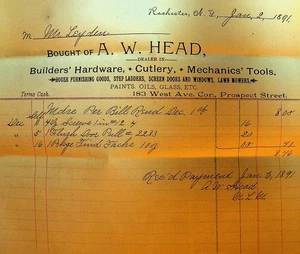 Rochester, N.Y., Jan. 2, 1891
M Mr Leyden
BOUGHT OF A. W. HEAD,
DEALER IN
Builders' Hardware, • Cutlery, • Mechanics' Tools.
HOUSE FURNISHING GOODS, STEP LADDERS, SCREEN DOORS AND WINDOWS, LAWN MOWERS,
PAINTS, OILS, GLASS, ETC.
Terms Cash. 183 West Ave. Cor. Prospect Street.
Mdse Per Bill Rend Dec 1st 8 00
Dec 16
" 5 1 Door Pull # 2233 20
" 16 Tacks 10¢ 05 41
8 76
Rec'd Payment Jan 2, 1891
A.W. Head